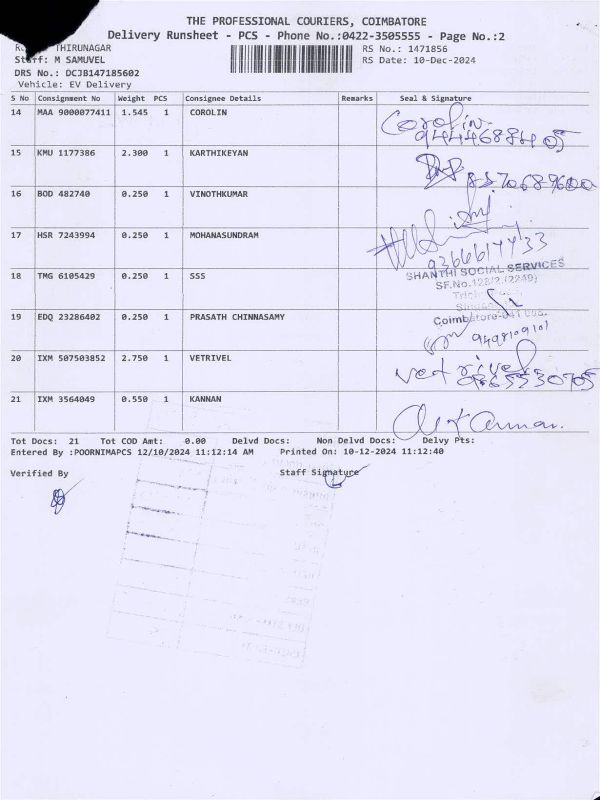 THE PROFESSIONAL COURIERS, COIMBATORE
Delivery Runsheet - PCS - Phone No.:0422-3505555 - Page No.:2
THIRUNAGAR RS No.: 1471856
Staff: M SAMUVEL RS Date: 10-Dec-2024
DRS No.: DCJB147185602
Vehicle: EV Delivery
S No Consignment No Weight PCS Consignee Details Remarks Seal & Signature
14 MAA 9000077411 1.545 1 COROLIN Corolin
15 KMU 1177386 2.300 1 KARTHIKEYAN
16 BOD 482740 0.250 1 VINOTHKUMAR
17 HSR 7243994 0.250 1 MOHANASUNDRAM
18 TMG 6105429 0.250 1 SSS SHANTHI SOCIAL SERVICES
19 EDQ 23286402 0.250 1 PRASATH CHINNASAMY
20 IXM 507503852 2.750 1 VETRIVEL
21 IXM 3564049 0.550 1 KANNAN
Tot Docs: 21 Tot COD Amt: 0.00 Delvd Docs: Non Delvd Docs: Delvy Pts:
Entered By :POORNIMAPCS 12/10/2024 11:12:14 AM Printed On: 10-12-2024 11:12:40
Verified By Staff Signature